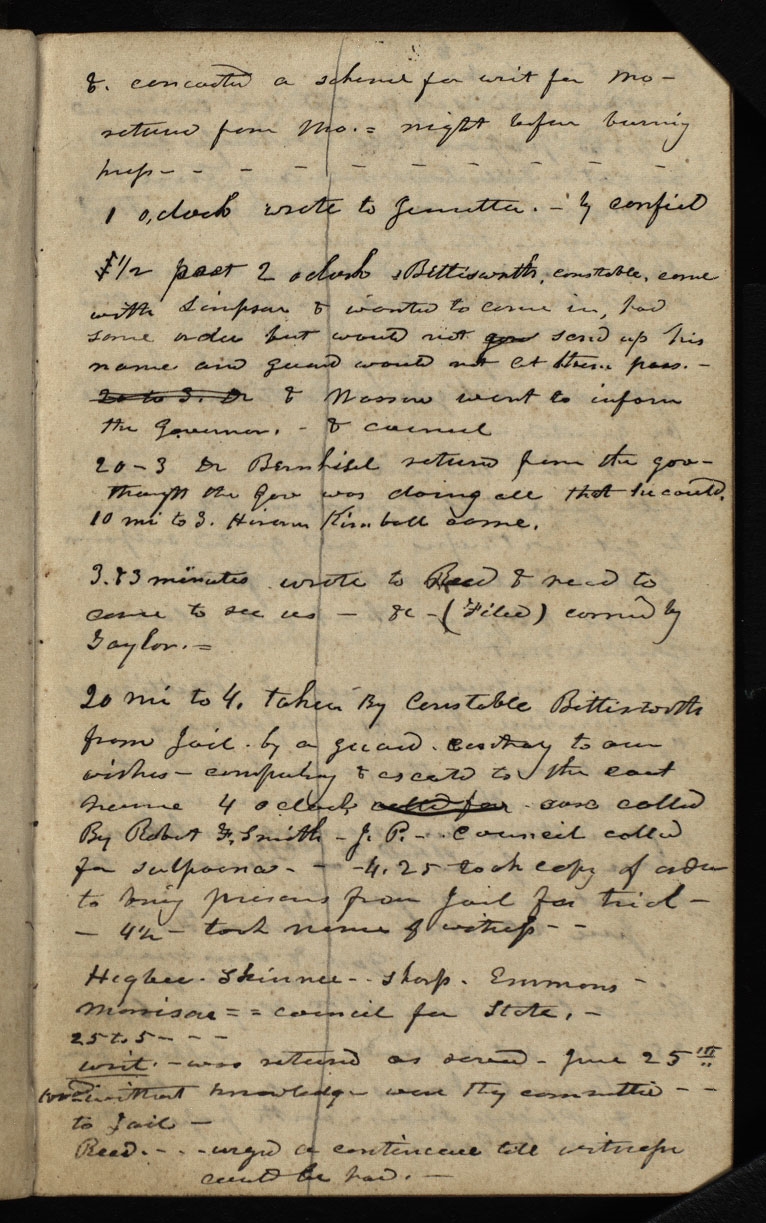 &. concocted a scheme for writ for Mo-
returned from Mo. = night before burning
press - - - - - - - - - -
1 o,clock wrote to - by
1/2 past 2 oclock Bettisworth, constable, came
with Simpson & wanted to come in, had
some order but would not send up his
name and guard would not let them pass. -
20 to 3. Dr & Wasson went to inform
the Governor. - & council
20-3 Dr Bernhisel returned from the gov-
thought the Gov was doing all that he could.
10 mi to 3. Hiram Kimball came.
3.&3 minutes wrote to Reed & read to
come to see us - &c - (Filed) carried by
Taylor. =
20 mi to 4. taken By Constable Bettisworth
from Jail. by a guard. contray to our
wishes - compulsory & escorted to the court
house 4 o clock called for case called
By Robert F. Smith - J. P. - . Council called
for subpoenas - - -4.25 took copy of order
to bring prisoners from Jail for trial -
- 4½ - took names of witness - -
Higbee. Skinner - . Sharp. Emmons -
Morrison = = council for State. -
25 to 5 - - -
writ. - was returned as served - June 25th
without knowledge were they committed - -
to Jail -
Reed. - . - urged a continuence till witness
could be had. -